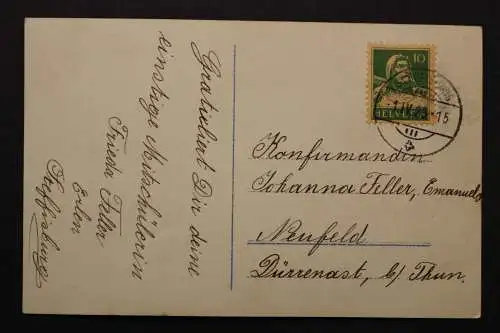 Gratuliert Dir deine
einstige Mitschülerin
Frieda Feller
Erlen
Steffisburg
10
HELVETIA
Konfirmandin
Johanna Feller, Emanuels
Neufeld
Dürrenast, b/ Thun.